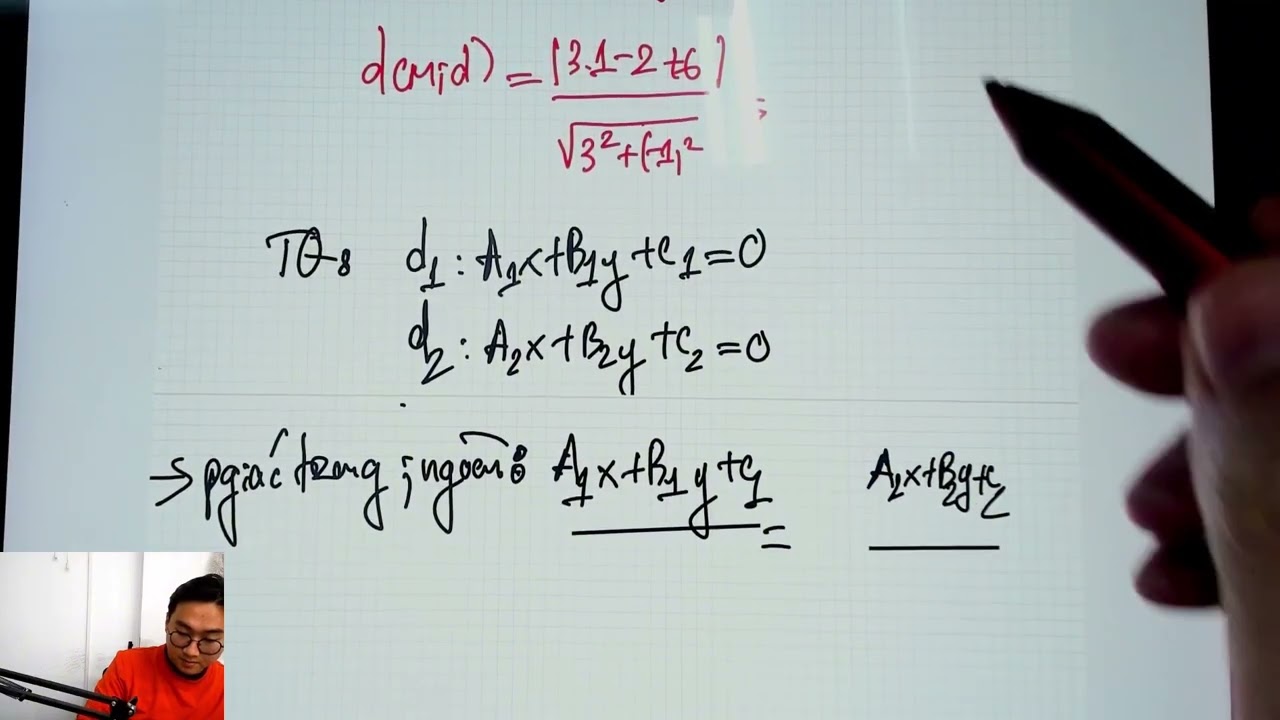 d(M;d) = |3.1-2+6| / √3²+(-1)² ;
TQ: d₁: A₁x+B₁y+C₁=0
d₂: A₂x+B₂y+C₂=0
→ pgiác trong ; ngoài: A₁x+B₁y+C₁ = A₂x+B₂y+C₂